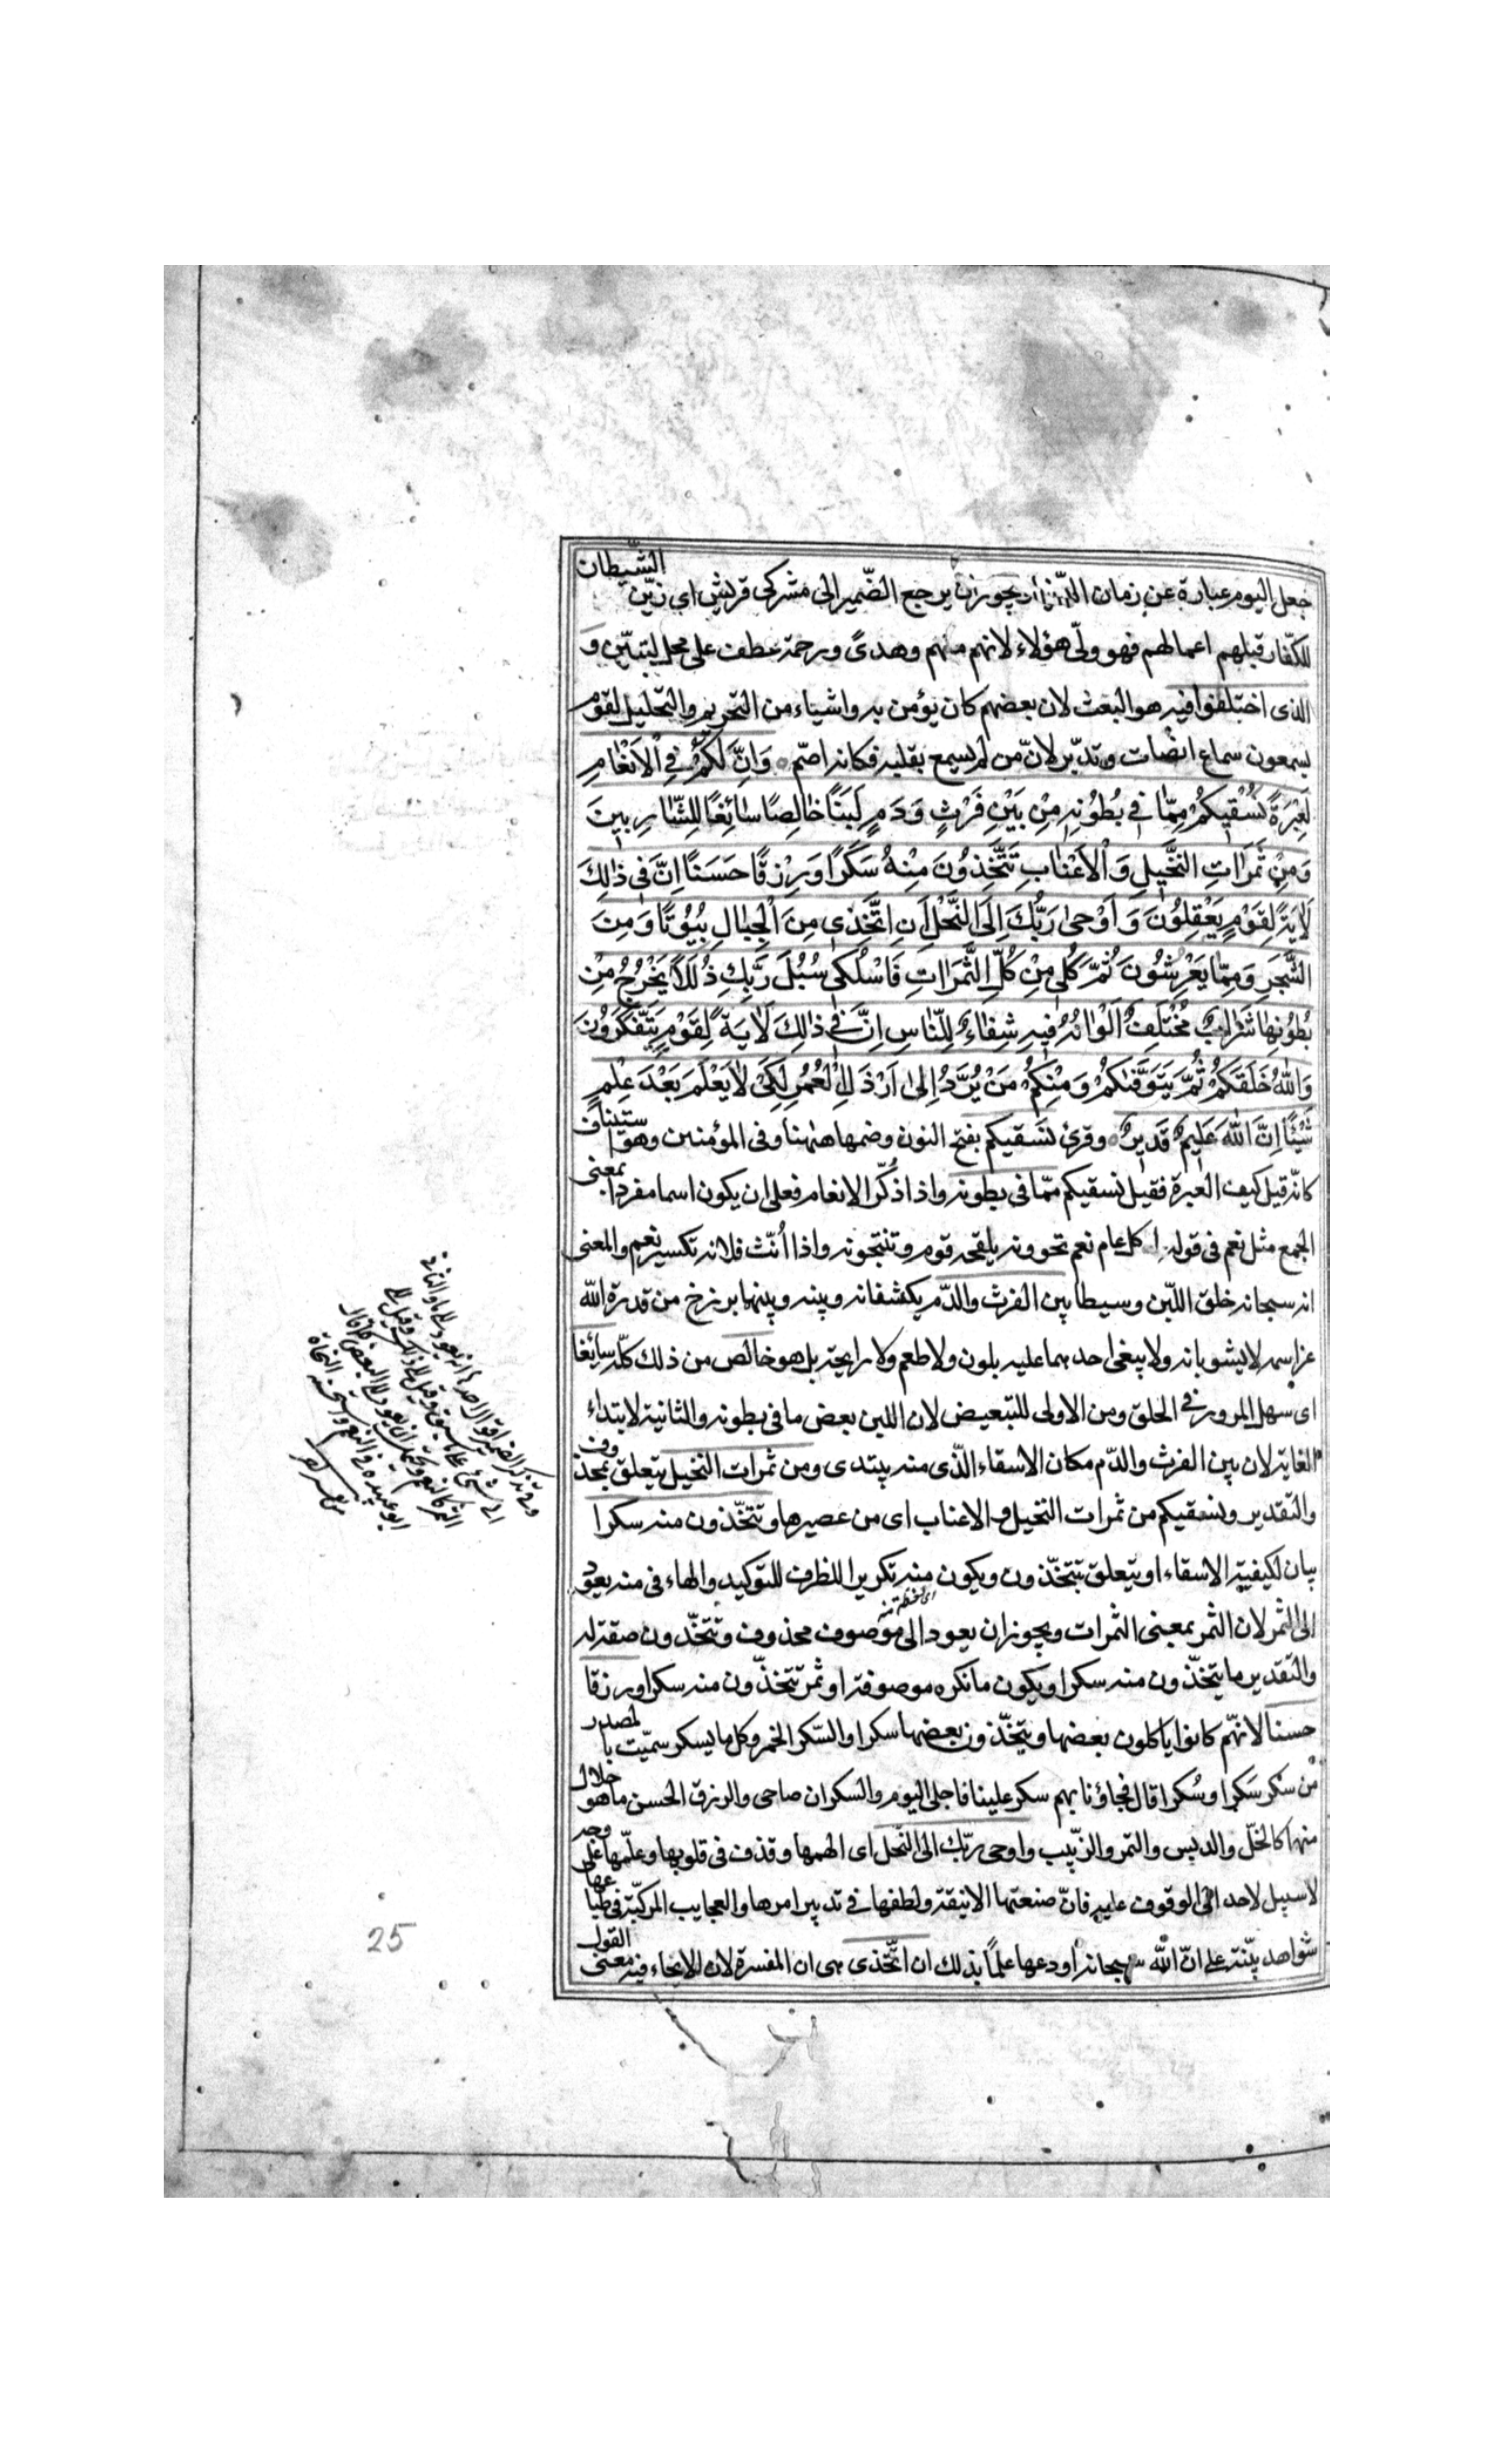 جعل اليوم عبارة عن زمان الدّنيا ويجوز ان يرجع الضّمير الى مشركى قريش اى زيّن الشّيطان
للكفّار قبلهم اعمالهم فهو ولىّ هؤلاء لانهم منهم وهدىً ورحمة عطف على محل لتبيّن وَ
الذى اختلفوا فيه هو البعث لان بعضهم كان يؤمن به واشياء من التحريم والتّحليل لقوم
يسمعون سماع انصات وتدبّر لانّ من لم يسمع بقلبه فكانه اصمّ ۝ وَاِنَّ لَكُمْ فِي الْاَنْعَامِ
لَعِبْرَةً نُسْقيكُمْ مِمّا في بُطُونِه مِنْ بَيْنِ فَرْثٍ وَدَمٍ لَبَنًا خالِصًا سائِغًا لِلشّارِبينَ
وَمِنْ ثَمَراتِ النَّخيلِ وَالْاَعْنابِ تَتَّخِذُونَ مِنْهُ سَكَرًا وَرِزْقًا حَسَنًا اِنَّ في ذلِكَ
لَايَةً لِقَوْمٍ يَعْقِلُونَ وَاَوْحى رَبُّكَ اِلَى النَّحْلِ اَنِ اتَّخِذي مِنَ الْجِبالِ بُيُوتًا وَمِنَ
الشَّجَرِ وَمِمّا يَعْرِشُونَ ثُمَّ كُلي مِنْ كُلِّ الثَّمَراتِ فَاسْلُكي سُبُلَ رَبِّكِ ذُلَلًا يَخْرُجُ مِنْ
بُطُونِها شَرابٌ مُخْتَلِفٌ اَلْوانُهُ فيهِ شِفاءٌ لِلنّاسِ اِنَّ في ذلِكَ لَايَةً لِقَوْمٍ يَتَفَكَّرُونَ
وَاللّهُ خَلَقَكُمْ ثُمَّ يَتَوَفّيكُمْ وَمِنْكُمْ مَنْ يُرَدُّ اِلى اَرْذَلِ الْعُمُرِ لِكَيْ لا يَعْلَمَ بَعْدَ عِلْمٍ
شَيْئًا اِنَّ اللّهَ عَليمٌ قَديرٌ ۝ وقرئ نسقيكم بفتح النون وضمها ههنا وفى المؤمنين وهو استيناف
كانّه قيل كيف العبرة فقيل نسقيكم ممّا فى بطونه واذا ذُكّر الانعام فعلى ان يكون اسما مفردا بمعنى
الجمع مثل نعم فى قوله اكل عام نعم تحوونه يلقحه قوم وتنتجونه واذا اُنّث فلانه تكسير نعم والمعنى
انه سبحانه خلق اللّبن وسيطا بين الفرث والدّم يكشفانه وبينه وبينها برزخ من قدرة الله
عز اسمه لا يشوبانه ولا يبغى احدهما عليه بلون ولا طعم ولا رايحة بل هو خالص من ذلك كلّه سائغا
اى سهل المرور فى الحلق ومن الاولى للتبعيض لان اللبن بعض ما فى بطونه والثانية لابتداء
الغاية لان بين الفرث والدّم مكان الاسقاء الّذى منه يبتدى ومن ثمرات النخيل يتعلق بمحذوف
والتقدير ونسقيكم من ثمرات النخيل والاعناب اى من عصيرها وتتخّذون منه سكرا
بيان لكيفية الاسقاء او يتعلق بتتخّذون ويكون منه تكريرا للظرف للتوكيد والهاء فى منه يعود
الى الثمر لان الثمر بمعنى الثمرات ويجوز ان يعود الى موصوف محذوف وتتخّذون صفة له
والتقدير ما يتخذّون منه سكرا ويكون ما نكره موصوفة او ثمر تتخذّون منه سكرا ورزقا
حسنا لانهّم كانوا ياكلون بعضها ويتخّذون بعضها سكرا والسّكر الخمر وكل ما يسكر سميّت بالمصدر
من سكر سَكرا وسُكرا قال فجاؤنا بهم سكر علينا فاجلى اليوم والسكران صاحى والرزق الحسن ما هو حلال
منها كالخلّ والدبس والتمر والزّبيب واوحى ربّك الى النّحل اى الهمها وقذف فى قلوبها وعلّمها على وجه
لا سبيل لاحد الى الوقوف عليه فانّ صنعتها الانيقة ولطفها فى تدبير امرها والعجايب المركّبة فى طباعها
شواهد بيّنة على انّ الله سبحانه اودعها علمًا بذلك ان اتّخذى هى ان المفسرة لان الايحاء فيه معنى القول
25